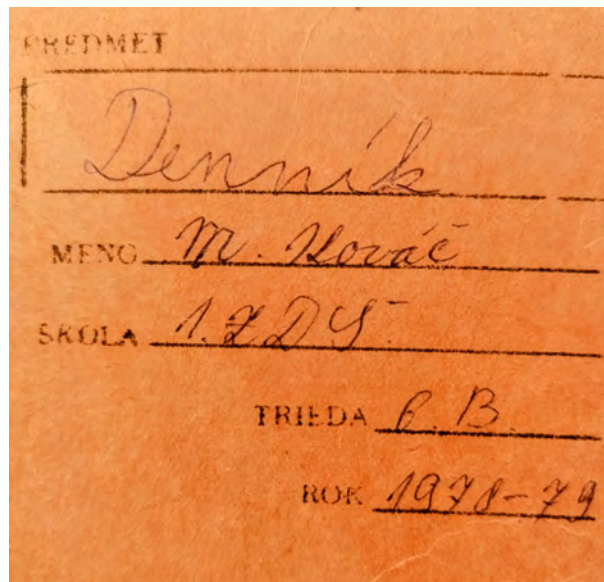 PREDMET
Denník
MENO M. Kováč
ŠKOLA 1. ZDŠ
TRIEDA 6. B.
ROK 1978-79